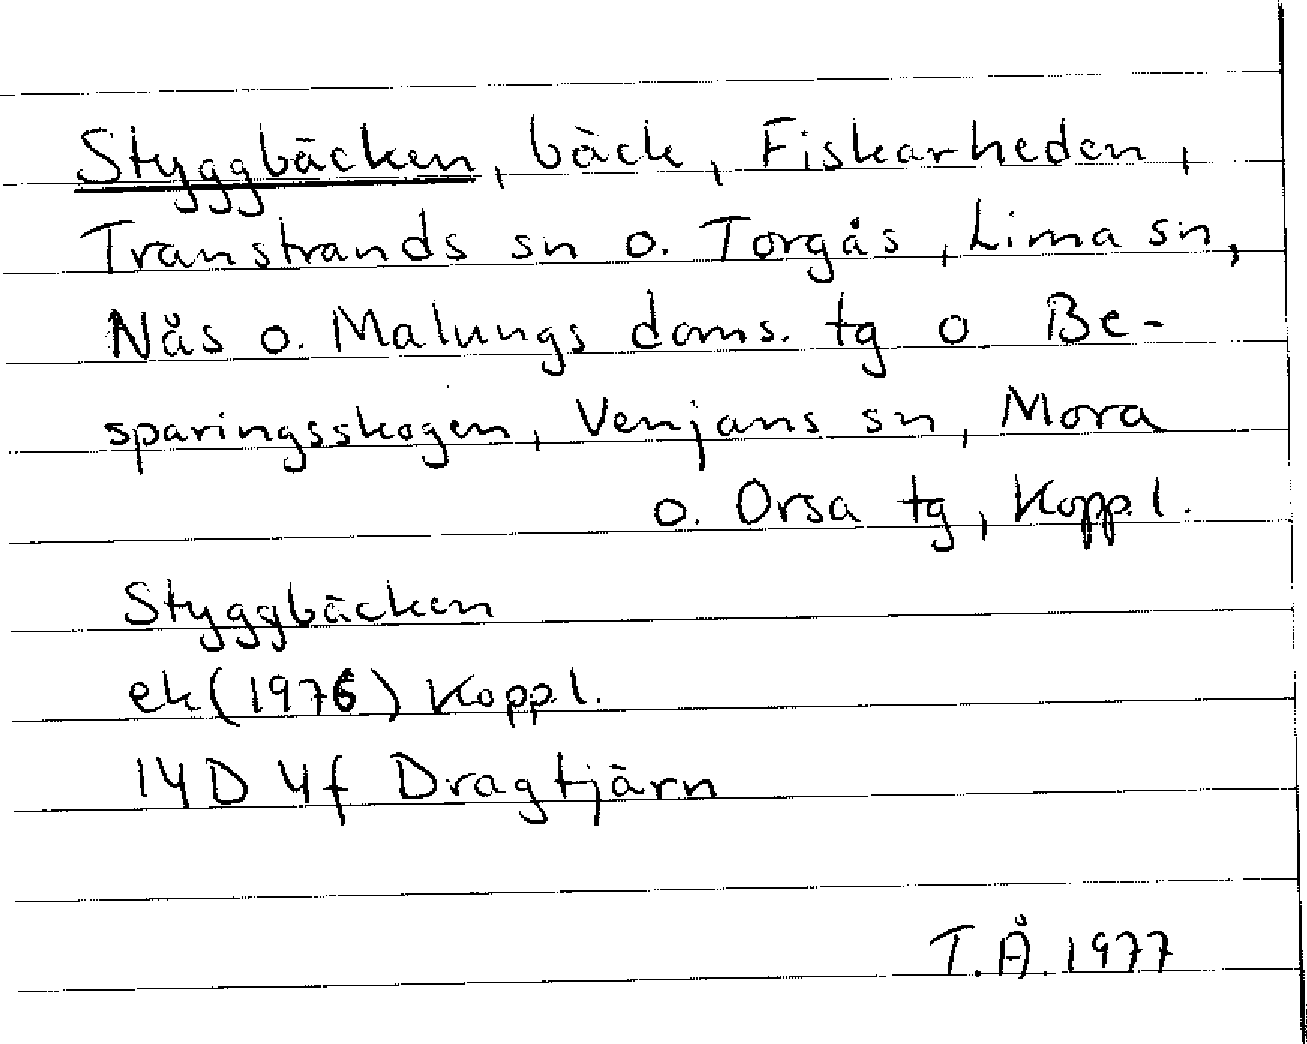 Styggbäcken, bäck, Fiskarheden,
Transtrands sn o. Torgås, Lima sn,
Nås o. Malungs doms. tg o Be-
sparingsskogen, Venjans sn, Mora
o. Orsa tg, Koppl.
Styggbäcken
ek(1976) Koppl.
14D 4f Dragtjärn
T.Å. 1977